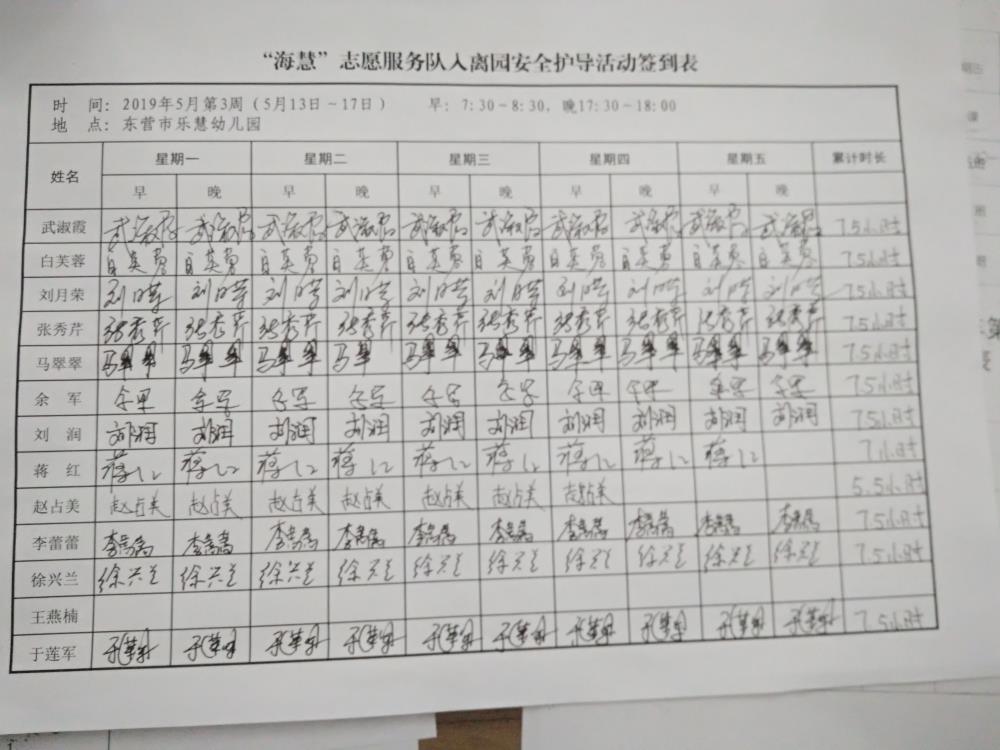 “海慧”志愿服务队入离园安全护导活动签到表
时 间: 2019年5月第3周（5月13日~17日） 早: 7:30~8:30, 晚17:30~18:00
地 点: 东营市乐慧幼儿园
姓名 星期一 星期二 星期三 星期四 星期五 累计时长
早 晚 早 晚 早 晚 早 晚 早 晚
武淑霞 武淑霞 武淑霞 武淑霞 武淑霞 武淑霞 武淑霞 武淑霞 武淑霞 武淑霞 武淑霞 7.5小时
白芙蓉 白芙蓉 白芙蓉 白芙蓉 白芙蓉 白芙蓉 白芙蓉 白芙蓉 白芙蓉 白芙蓉 白芙蓉 7.5小时
刘月荣 刘月荣 刘月荣 刘月荣 刘月荣 刘月荣 刘月荣 刘月荣 刘月荣 刘月荣 刘月荣 7.5小时
张秀芹 张秀芹 张秀芹 张秀芹 张秀芹 张秀芹 张秀芹 张秀芹 张秀芹 张秀芹 张秀芹 7.5小时
马翠翠 马翠翠 马翠翠 马翠翠 马翠翠 马翠翠 马翠翠 马翠翠 马翠翠 马翠翠 马翠翠 7.5小时
余 军 余军 余军 余军 余军 余军 余军 余军 余军 余军 余军 7.5小时
刘 润 刘润 刘润 刘润 刘润 刘润 刘润 刘润 刘润 刘润 刘润 7.5小时
蒋 红 蒋红 蒋红 蒋红 蒋红 蒋红 蒋红 蒋红 蒋红 蒋红 7小时
赵占美 赵占美 赵占美 赵占美 赵占美 赵占美 赵占美 赵占美 5.5小时
李蕾蕾 李蕾蕾 李蕾蕾 李蕾蕾 李蕾蕾 李蕾蕾 李蕾蕾 李蕾蕾 李蕾蕾 李蕾蕾 李蕾蕾 7.5小时
徐兴兰 徐兴兰 徐兴兰 徐兴兰 徐兴兰 徐兴兰 徐兴兰 徐兴兰 徐兴兰 徐兴兰 徐兴兰 7.5小时
王燕楠
于莲军 于莲军 于莲军 于莲军 于莲军 于莲军 于莲军 于莲军 于莲军 于莲军 于莲军 7.5小时